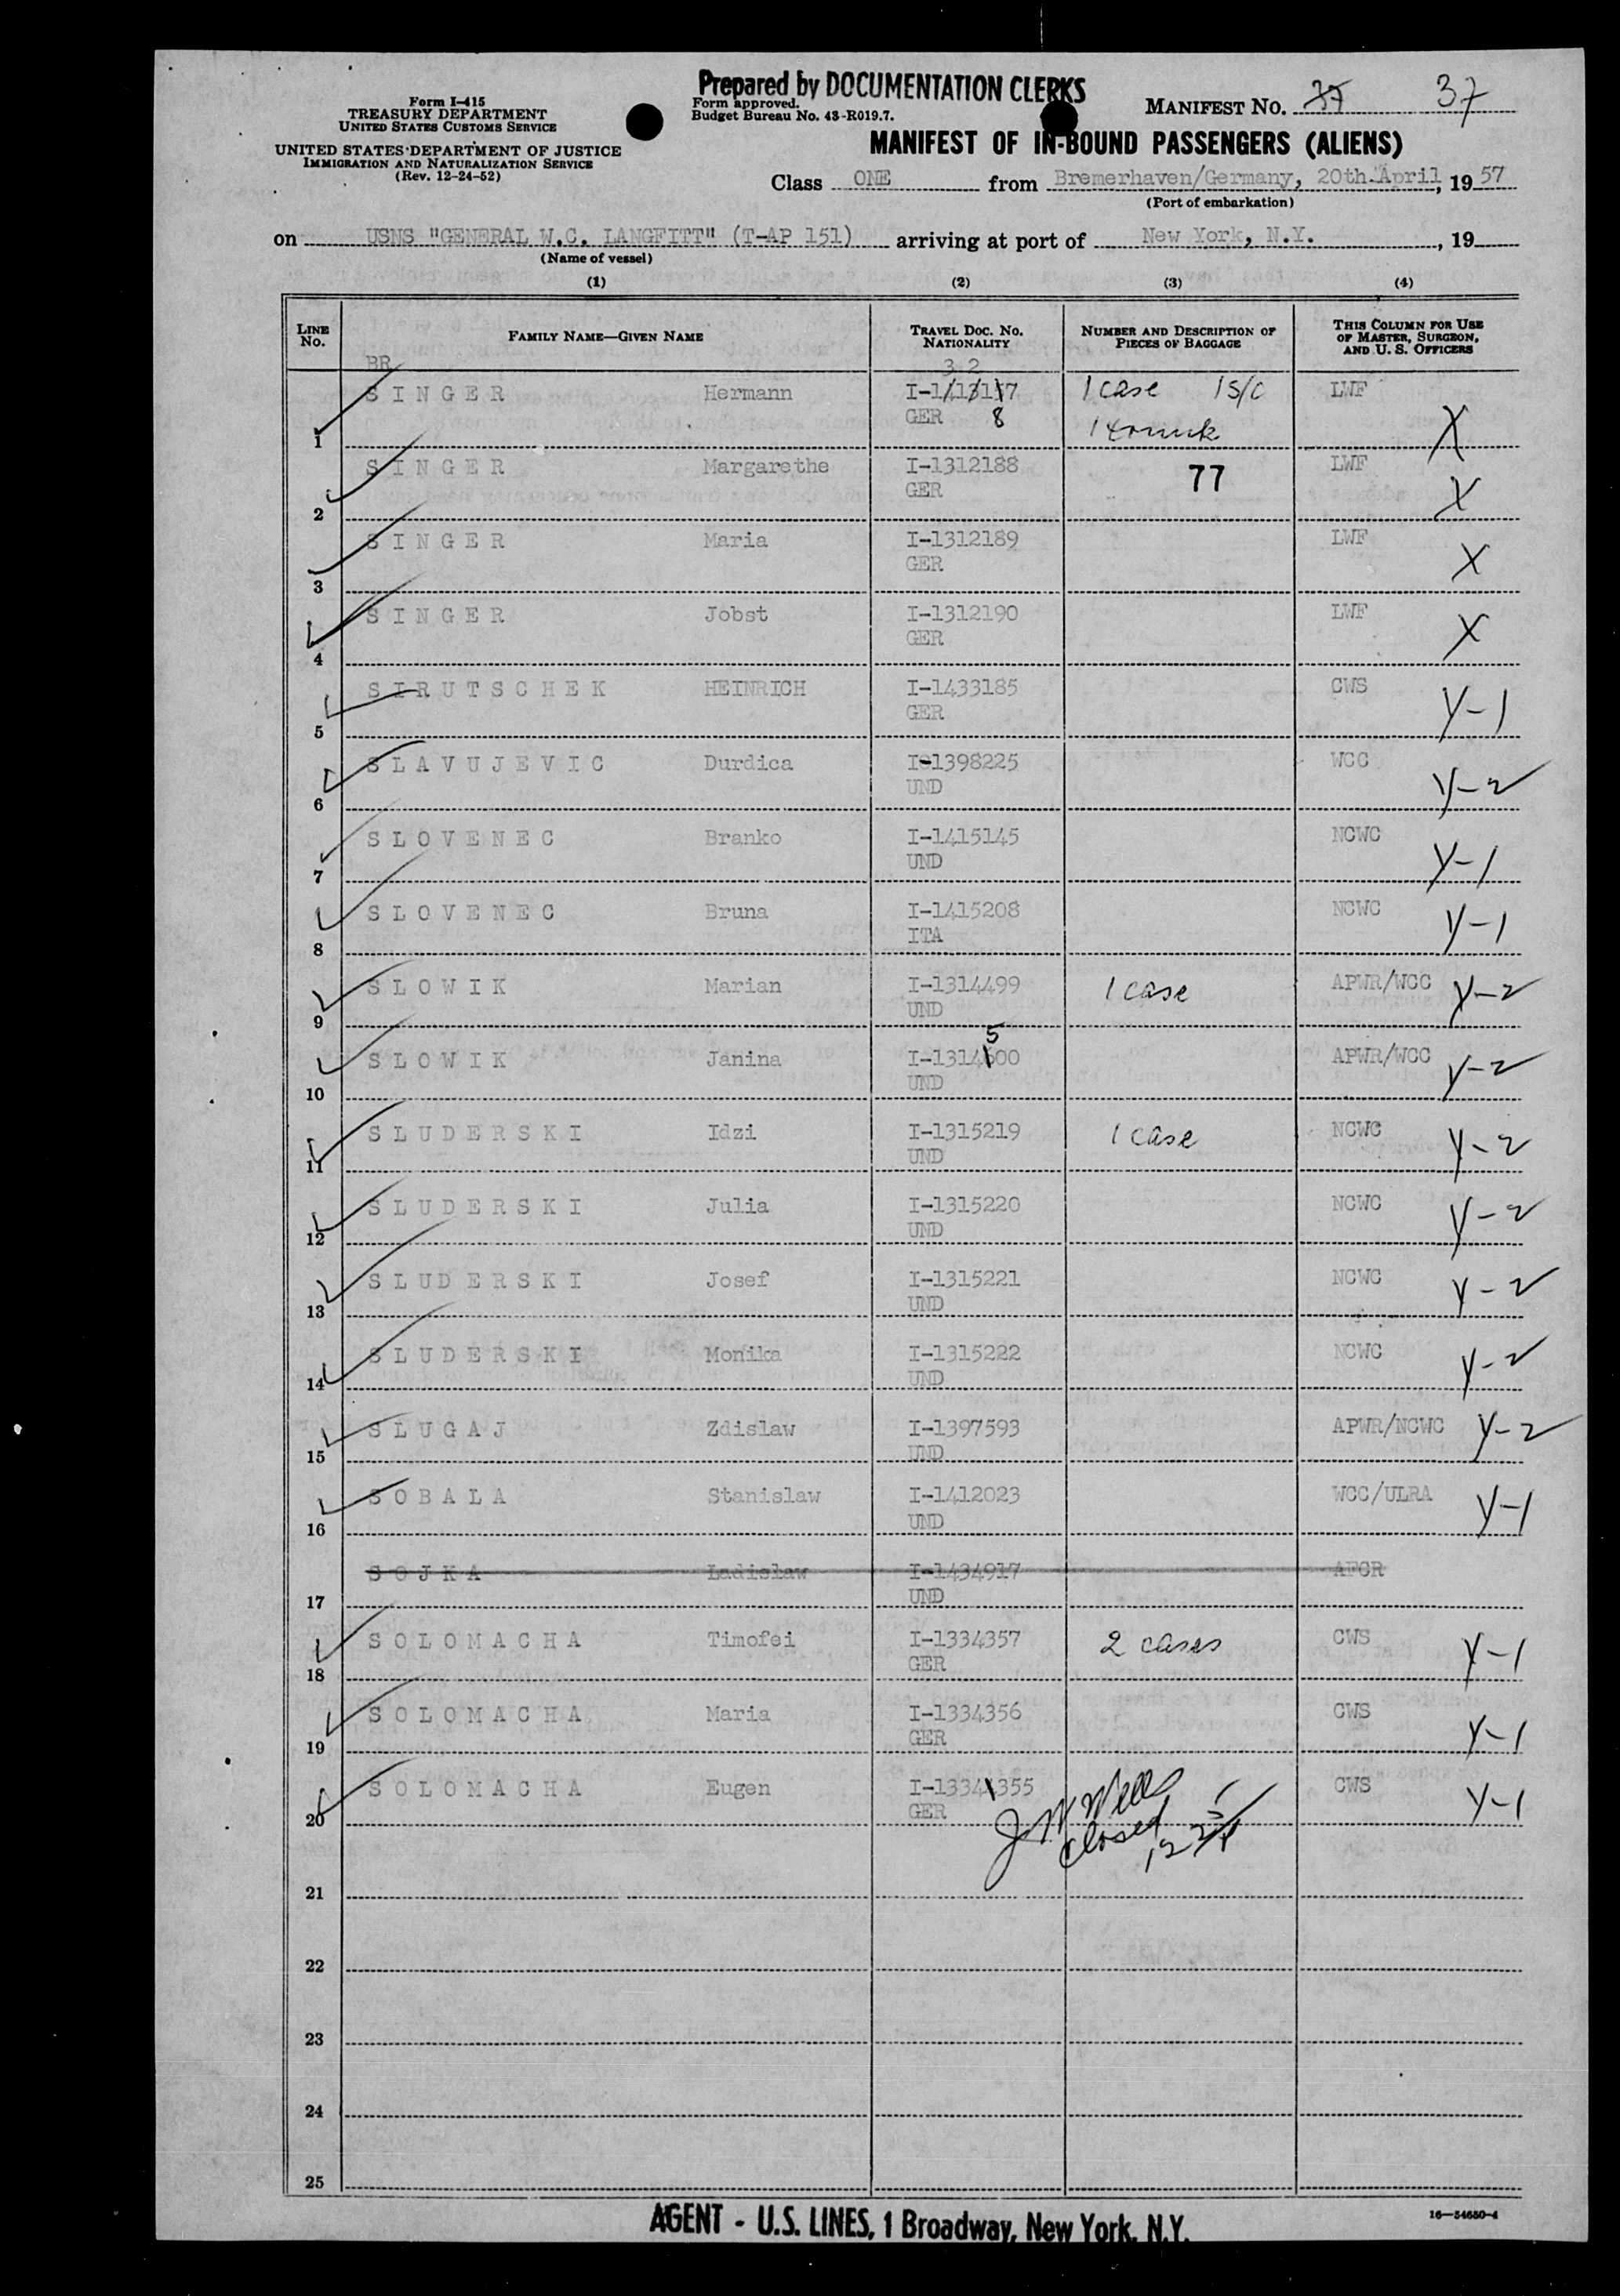 Prepared by DOCUMENTATION CLERKS
Form I-415
TREASURY DEPARTMENT
UNITED STATES CUSTOMS SERVICE
UNITED STATES DEPARTMENT OF JUSTICE
IMMIGRATION AND NATURALIZATION SERVICE
(Rev. 12-24-52)
Form approved.
Budget Bureau No. 43-R019.7.
MANIFEST NO. 37 37
MANIFEST OF IN-BOUND PASSENGERS (ALIENS)
Class ONE from Bremerhaven/Germany, 20th April, 19 57
(Port of embarkation)
on USNS "GENERAL W.C. LANGFITT" (T-AP 151) arriving at port of New York, N.Y. , 19
(Name of vessel)
(1) (2) (3) (4)
LINE No. FAMILY NAME—GIVEN NAME TRAVEL DOC. NO. NATIONALITY NUMBER AND DESCRIPTION OF PIECES OF BAGGAGE THIS COLUMN FOR USE OF MASTER, SURGEON, AND U. S. OFFICERS
BR 3 2
SINGER Hermann I-1413117 1 case 1 S/C LWF
1 GER 8 1 trunk X
SINGER Margarethe I-1312188 77 LWF
2 GER X
SINGER Maria I-1312189 LWF
3 GER X
SINGER Jobst I-1312190 LWF
4 GER X
SIRUTSCHEK HEINRICH I-1433185 CWS
5 GER Y-1
SLAVUJEVIC Durdica I-1398225 WCC
6 UND Y-2
SLOVENEC Branko I-1415145 NCWC
7 UND Y-1
SLOVENEC Bruna I-1415208 NCWC
8 ITA Y-1
SLOWIK Marian I-1314499 1 case APWR/WCC Y-2
9 UND
5
SLOWIK Janina I-1314600 APWR/WCC Y-2
10 UND
SLUDERSKI Idzi I-1315219 1 case NCWC Y-2
11 UND
SLUDERSKI Julia I-1315220 NCWC Y-2
12 UND
SLUDERSKI Josef I-1315221 NCWC Y-2
13 UND
SLUDERSKI Monika I-1315222 NCWC Y-2
14 UND
SLUGAJ Zdislaw I-1397593 APWR/NCWC Y-2
15 UND
SOBALA Stanislaw I-1412023 WCC/ULRA Y-1
16 UND
SOJKA Ladislaw I-1434917 AFCR
17 UND
SOLOMACHA Timofei I-1334357 2 cases CWS Y-1
18 GER
SOLOMACHA Maria I-1334356 CWS
19 GER Y-1
SOLOMACHA Eugen I-1334355 CWS Y-1
20 GER
J W Wells
closed
21
22
23
24
25
AGENT - U.S. LINES, 1 Broadway, New York. N.Y.
16—54650-4